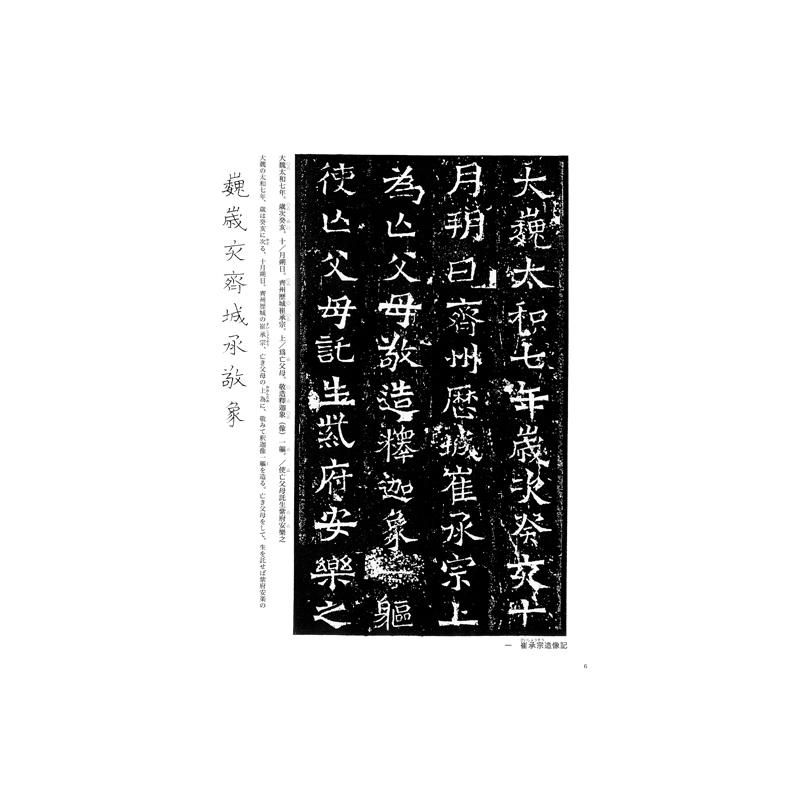 大巍太和七年歲次癸亥十
月朔日齊州歷城崔承宗上
為亡父母敬造釋迦象一軀
使亡父母託生紫府安樂之
大魏太和七年、歲次癸亥、十／月朔日、齊州歷城崔承宗、上／爲亡父母、敬造釋迦象（像）一軀、／使亡父母託生紫府安樂之
大魏の太和七年、歳は癸亥に次る、十月朔日、齊州歴城の崔承宗、亡き父母の上為に、敬みて釈迦像一軀を造る。亡き父母をして、生を託せば紫府安楽の
巍歲亥齊城承敬象
一 崔承宗造像記
6